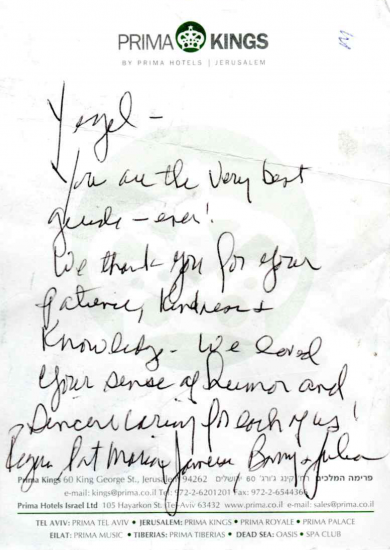 PRIMA KINGS
BY PRIMA HOTELS | JERUSALEM
You are the very best
guide - ever!
We thank you for your
patience, kindness &
Knowledge - We loved
your sense of humor and
sincere caring for each of us!
Pat Bonny & Julia
Prima Kings 60 King George St., Jerusalem 94262 פרימה המלכים רח' קינג ג'ורג' 60 ירושלים
e-mail: kings@prima.co.il Tel: 972-2-6201201 Fax: 972-2-6544366
Prima Hotels Israel Ltd 105 Hayarkon St. Tel-Aviv 63432 www.prima.co.il e-mail: sales@prima.co.il
TEL AVIV: PRIMA TEL AVIV • JERUSALEM: PRIMA KINGS • PRIMA ROYALE • PRIMA PALACE
EILAT: PRIMA MUSIC • TIBERIAS: PRIMA TIBERIAS • DEAD SEA: OASIS • SPA CLUB